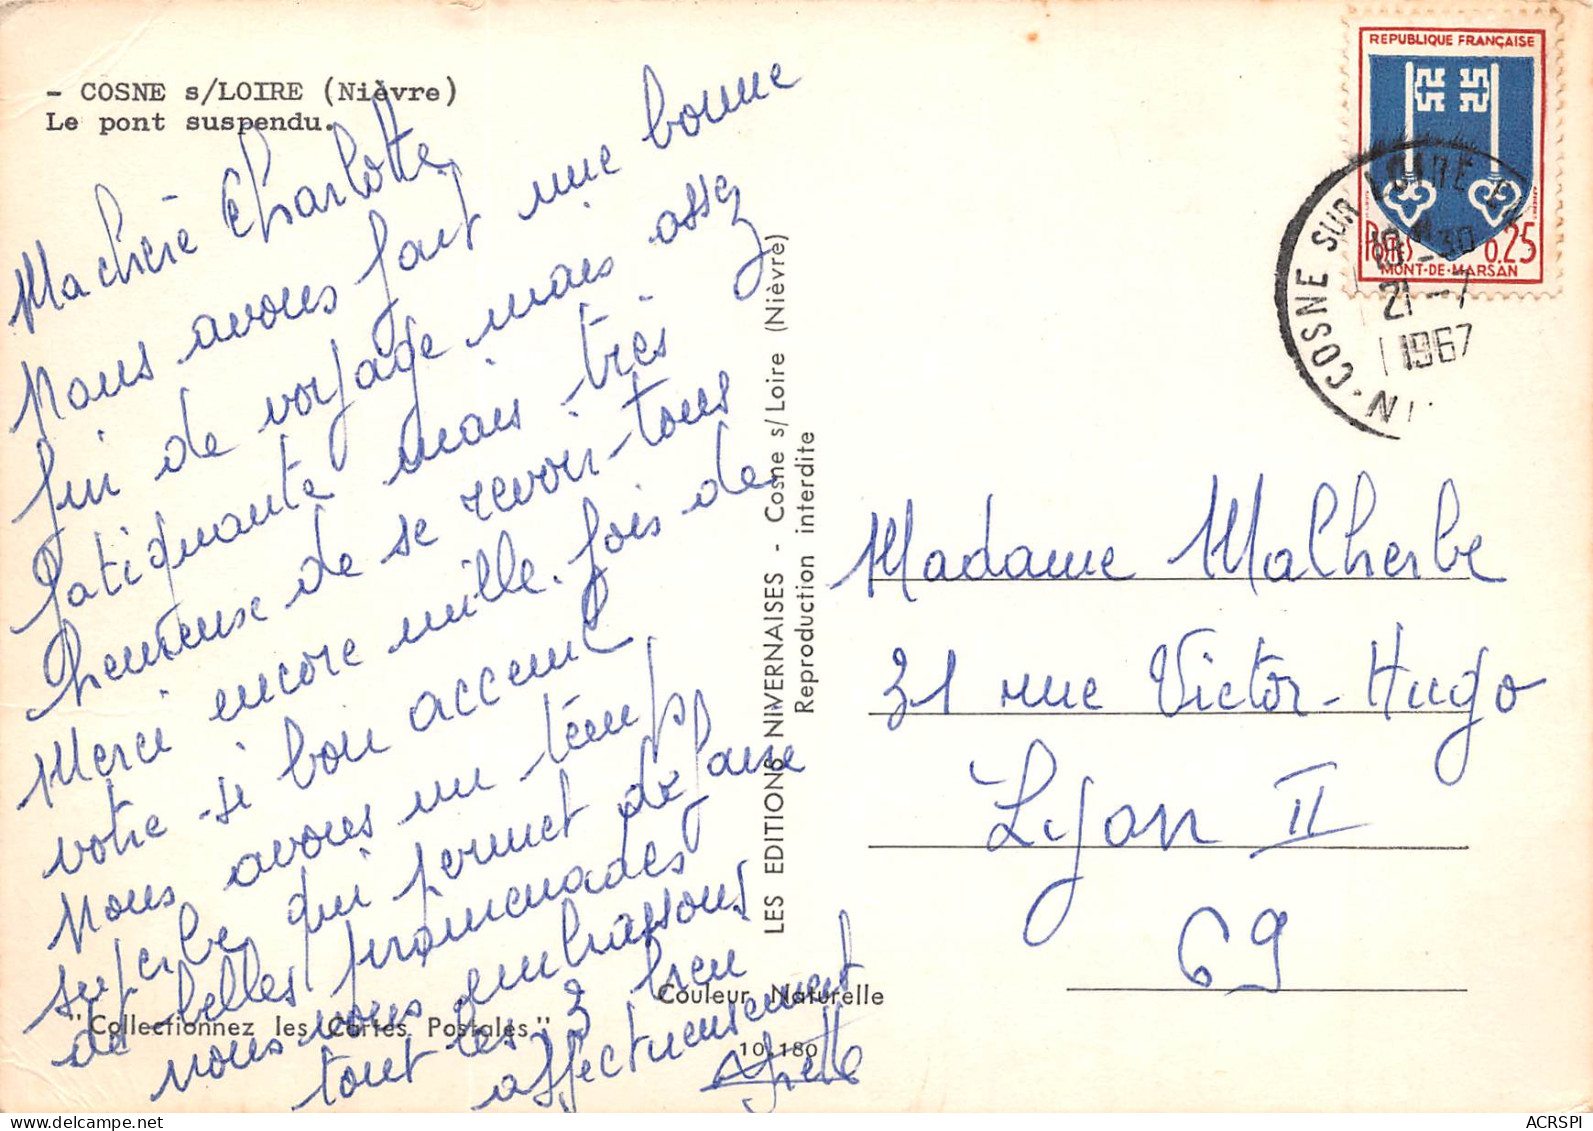 - COSNE s/LOIRE (Nièvre)
Le pont suspendu.
Ma chère Charlotte,
Nous avons fait une bonne
fin de voyage mais assez
fatiguante mais très
heureuse de se revoir tous
Merci encore mille fois de
votre si bon accueil
Nous avons un temps
superbe, qui permet de faire
de belles promenades
nous vous embrassons
tout les 3 bien
affectueusement
"Collectionnez les Cartes Postales"
Couleur Naturelle
10.180
LES EDITIONS NIVERNAISES - Cosne s/Loire (Nièvre)
Reproduction interdite
REPUBLIQUE FRANÇAISE
POSTES 0,25
MONT-DE-MARSAN
COSNE SUR LOIRE
19H30
21-7
1967
Madame Malherbe
31 rue Victor-Hugo
Lyon II
69
ACRSPI